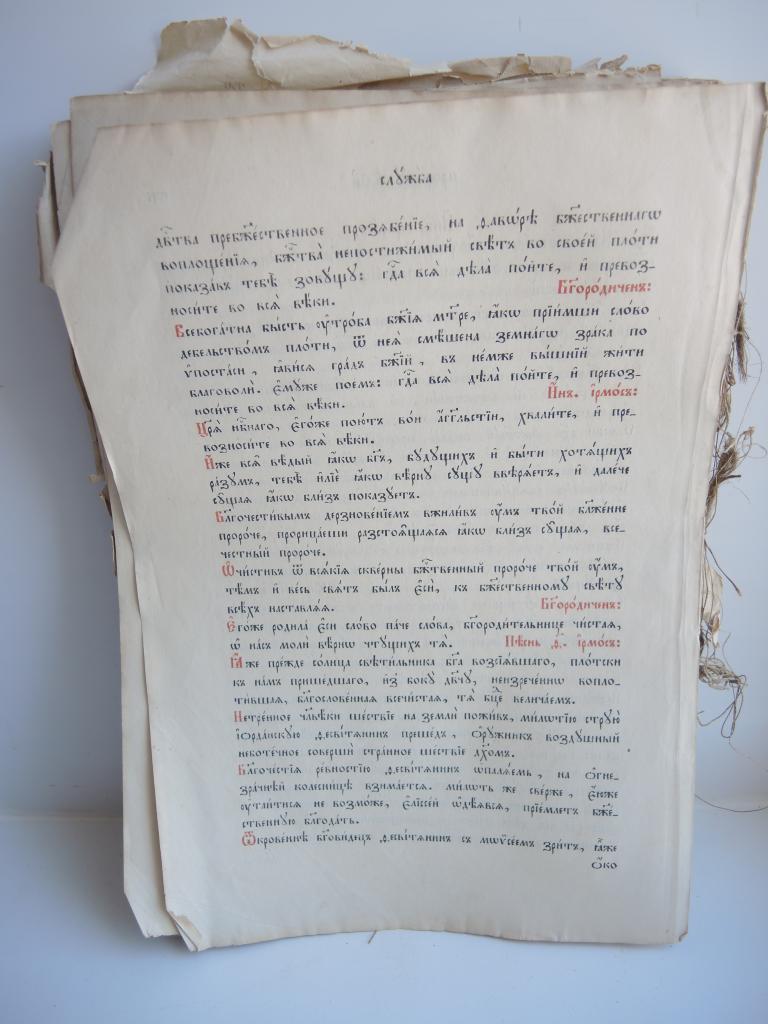 слꙋ́жба
дв҃ства пребж҃е́ственное прозѧбе́нїе, на ѳавѡ́рѣ бж҃е́ственнагѡ
воплоще́нїѧ, бж҃тва̀ непостижи́мый свѣ́тъ во свое́й пло́ти
показа́въ тебѣ̀ зовꙋ́щꙋ: гдⷭ҇а всѧ̑ дѣла̀ по́йте, и҆ превоз-
носи́те во всѧ̑ вѣ́ки. Бг҃оро́диченъ:
Всебога́тна бы́сть ᲂу҆тро́ба бж҃їѧ мт҃ре, ꙗ҆́кѡ прїи́мши сло́во
дебельство́мъ пло́ти, ѿ неѧ̀ смѣ́шена земна́гѡ зра́ка по
ѵ҆поста́си, ꙗ҆ви́сѧ гра́дъ бж҃їй, въ не́мже вы́шнїй жи́ти
благоволѝ. є҆мꙋ́же пое́мъ: гдⷭ҇а всѧ̑ дѣла̀ по́йте, и҆ превоз-
носи́те во всѧ̑ вѣ́ки. И҆́нъ. і҆рмо́съ:
Цр҃ѧ̀ нбⷭ҇наго, є҆го́же пою́тъ во́и а҆́гг҃льстїи, хвали́те, и҆ пре-
возноси́те во всѧ̑ вѣ́ки.
И҆́же всѧ̑ вѣ́дый ꙗ҆́кѡ бг҃ъ, бꙋ́дꙋщихъ и҆ бы́ти хотѧ́щихъ
ра́зꙋмъ, тебѣ̀ и҆лїѐ ꙗ҆́кѡ вѣ́рнꙋ сꙋ́щꙋ ввѣрѧ́етъ, и҆ дале́че
сꙋ̑щаѧ ꙗ҆́кѡ бли́зъ показꙋ́етъ.
Благочести́вымъ дерзнове́нїемъ вжили́въ ᲂу҆́мъ тво́й бл҃же́нне
проро́че, прорица́еши разстоѧ̑щаѧсѧ ꙗ҆́кѡ бли́зъ сꙋ̑щаѧ, все-
че́стный проро́че.
Ѡ҆чи́стивъ ѿ всѧ́кїѧ скве́рны бж҃е́твенный проро́че тво́й ᲂу҆́мъ,
тѣ́мъ и҆ ве́сь свѧ́тъ бы́лъ є҆сѝ, къ бж҃е́ственномꙋ свѣ́тꙋ
всѣ́хъ наставлѧ́ѧ. Бг҃оро́диченъ:
Є҆го́же родила̀ є҆сѝ сло́во па́че сло́ва, бг҃ороди́тельнице чи́стаѧ,
ѡ҆ на́съ молѝ вѣ́рнѡ чтꙋ́щихъ тѧ̀. Пѣ́снь ѳ҃. і҆рмо́съ:
Ꙗ҆́же пре́жде со́лнца свѣти́льника бг҃а возсїѧ́вшаго, пло́тски
къ на́мъ прише́дшаго, и҆з̾ бокꙋ̀ дв҃и́чꙋ, неизрече́ннѡ вопло-
ти́вшаѧ, благослове́ннаѧ всечи́стаѧ, тѧ̀ бцⷣе велича́емъ.
Нетре́нное чл҃вѣ́ки ше́ствїе на землѝ пожи́въ, ми́лотїю стрꙋю̀
і҆ѻрда́нскꙋю ѳесві́тѧнинъ преше́дъ, ѻ҆рꙋ́жникъ воздꙋ́шный
неботе́чное совершѝ стра́нное ше́ствїе дх҃омъ.
Благоче́стїѧ ре́вностїю ѳесві́тѧнинъ ѡ҆палѧ́емь, на ѻ҆гне-
зра́чнѣй колесни́цѣ взима́етсѧ. ми́лоть же све́рже, є҆́юже
ᲂу҆тли́тисѧ не возмо́же, є҆лїссе́й ѡ҆дѣ́ѧвсѧ, прїе́млетъ бж҃е́-
ственнꙋю благода́ть.
Ѿкрове́ннѣ бг҃ови́децъ ѳесві́тѧнинъ съ мѡѷсе́емъ зри́тъ, ꙗ҆̀же
ѻ҆́ко